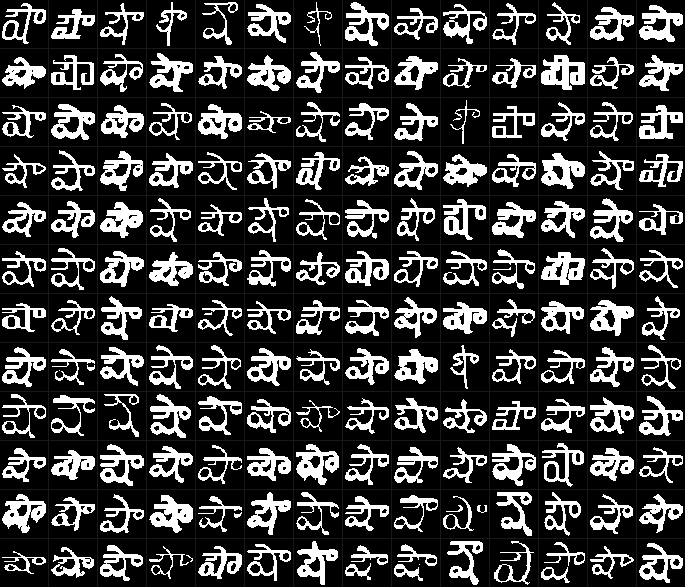 షా షా షా షా షా షా షా షా షా షా షా షా షా షా
షా షా షా షా షా షా షా షా షా షా షా షా షా షా
షా షా షా షా షా షా షా షా షా షా షా షా షా షా
షా షా షా షా షా షా షా షా షా షా షా షా షా షా
షా షా షా షా షా షా షా షా షా షా షా షా షా షా
షా షా షా షా షా షా షా షా షా షా షా షా షా షా
షా షా షా షా షా షా షా షా షా షా షా షా షా షా
షా షా షా షా షా షా షా షా షా షా షా షా షా షా
షా షా షా షా షా షా షా షా షా షా షా షా షా షా
షా షా షా షా షా షా షా షా షా షా షా షా షా షా
షా షా షా షా షా షా షా షా షా షా షా షా షా షా
షా షా షా షా షా షా షా షా షా షా షా షా షా షా